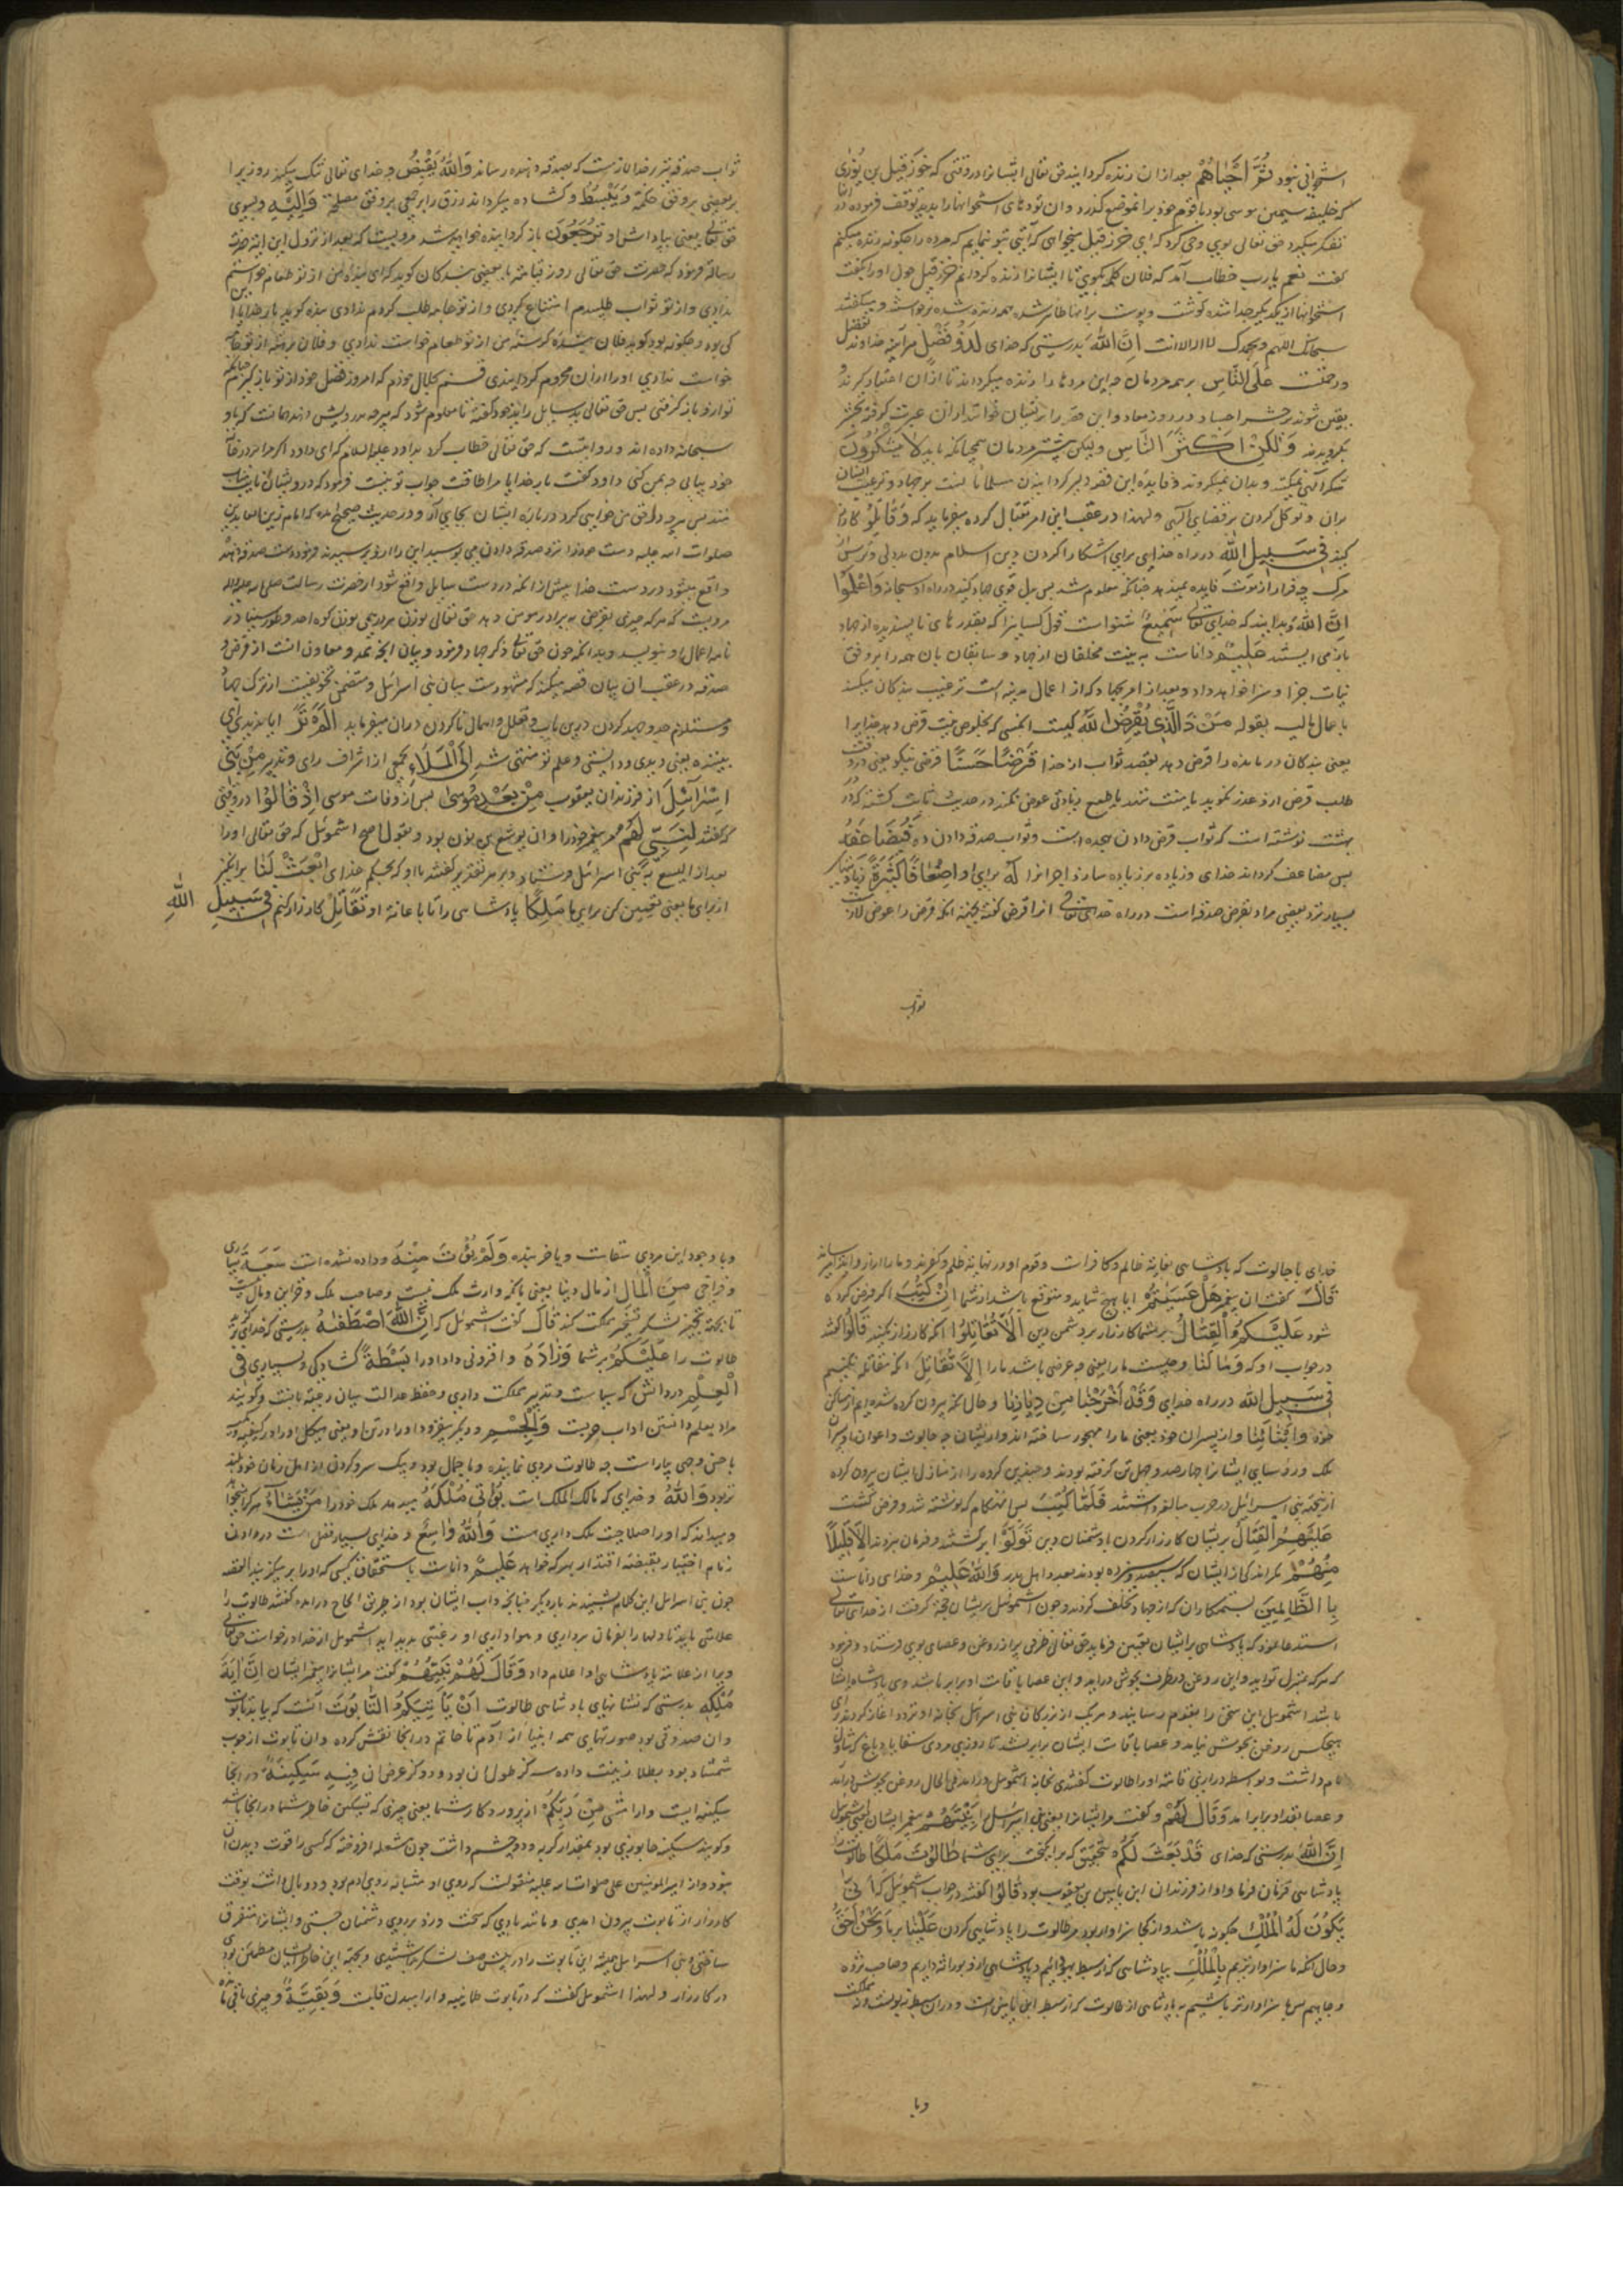 استخوانی نبود ثُمَّ اَحْیَاهُمْ بعد از ان زنده کردانید حق تعالی ایشانرا در وقتی که حزقیل بن یُوزی
که خلیفه سیمین موسی بود با قوم خود برانموضع کذر کرد وان تودهای استخوانها را بدید توقف فرموده در
تفکر میکرد حق تعالی بوی وحی کرد که ای حزقیل میخواهی که آیتی بتو نمایم که مرده را چکونه زنده میکنم
کفت نعم یا رب خطاب آمد که فلان کلمه بکوی تا ایشانرا زنده کردانم حزقیل چون اورا بکفت
استخوانها از یکدیکر جدا شده کوشت و پوست برانها ظاهر شده همه زنده شده برخواستند و میکفتند
سبحانک اللهم وبحمدک لا اله الا انت اِنَّ اللهَ بدرستی که خدای لَذُو فَضْلٍ هر آینه خداوند فضل
ورحمتست عَلَی النَّاسِ بر همه مردمان چه این مردها را زنده میکرداند تا از ان اعتبار کیرند و
بیقین شوند بر حشر اجساد در روز معاد و این قصه را بر ایشان خواند تا از ان عبرت کرفته بحشر
بکروند وَلٰکِنَّ اَکْثَرَ النَّاسِ ولیکن بیشتر مردمان همچنانکه باید لَا یَشْکُرُونَ
شکر آلهی نمیکنند و بدان نمیکروند وفایده این قصه دلیر کردانیدن مسلمانانست بر جهاد و ترغیب ایشان
بران و توکل کردن بر قضای آلهی ولهذا در عقب این امر بقتال کرده میفرماید که وَقَاتِلُوا کارزار
کنید فِی سَبِیلِ اللهِ در راه خدای برای اشکارا کردن دین اسلام بدون بددلی و ترس از
مرک چه فرار از موت فایده نمیدهد چنانکه معلوم شد پس بدل قوی جهاد کنید در راه او سبحانه وَاعْلَمُوا
اِنَّ اللهَ وبدانید که خدای تعالی سَمِیعٌ شنواست قول کسانیرا که بعذرهای ناپسندیده از جهاد
باز می ایستند عَلِیمٌ داناست به نیت مخلفان از جهاد و سابقان بان همه را بر وفق
نیات جزا و سزا خواهد داد و بعد از امر بجهاد که از اعمال بدنیه است ترغیب بندکان میکند
باعمال مالیه بقوله مَنْ ذَا الَّذِی یُقْرِضُ اللهَ کیست انکسی که بخلوص نیت قرض دهد خدایرا
یعنی بندکان درمانده را قرض دهد بقصد ثواب از خدا قَرْضًا حَسَنًا قرضی نیکو یعنی در وقت
طلب قرض ازو عذر نکوید یا منت ننهد یا طمع زیادتی عوض نکند در حدیث ثابت کشته که در
بهشت نوشته است که ثواب قرض دادن هجده است وثواب صدقه دادن ده فَیُضَاعِفَهُ
پس مضاعف کرداند خدای وزیاده بر زیاده سازد اجر انرا لَهُ برای او اَضْعَافًا کَثِیرَةً زیادتیهای
بسیار نزد بعضی مراد بقرض صدقه است در راه خدای تعالی انرا قرض کفته بجهة انکه قرض را عوض لازمست
ثواب
ثواب صدقه نیز نزد خدا لازمست که بصدقه دهنده رساند وَاللهُ یَقْبِضُ و خدای تعالی تنک میکند روزیرا
بر بعضی بر وفق حکمة وَیَبْسُطُ وکشاده میکرداند رزق را بر جمعی بر وفق مصلحة وَاِلَیْهِ وبسوی
حق تعالی یعنی بپاداش او تُرْجَعُونَ بازکردانیده خواهید شد مرویست که بعد از نزول این ایة حضرت
رسالة فرمود که حضرت حق تعالی روز قیامة با بعضی بندکان کوید که ای بنده من از تو طعام خواستم
ندادی و از تو ثواب طلبیدم امتناع کردی و از تو جامه طلب کردم ندادی بنده کوید بار خدایا این
کی بود وچکونه بود کوید فلان بنده کرسنه من از تو طعام خواست ندادی و فلان برهنه از تو جامه
خواست ندادی اورا از ان محروم کردانیدی قسم بجلال خودم که امروز فضل خود از تو باز کیرم چنانکه
تو ازو باز کرفتی پس حق تعالی ید سایل را ید خود کفته تا معلوم شود که هرچه بدرویش دهند همانست که باو
سبحانه داده اند و روایتست که حق تعالی خطاب کرد بداود علیه السلام که ای داود اکر مرا در خانه
خود بیابی چه بمن کنی داود کفت بار خدایا مرا طاقت جواب تو نیست فرمود که درویشان نایبان
منند پس هرچه در حق من خواهی کرد درباره ایشان بجای آر و در حدیث صحیح امده که امام زین العابدین
صلوات الله علیه دست خود را نزد صدقه دادن می بوسید این را ازو پرسیدند فرمود دست صدقه دهنده
واقع میشود در دست خدا پیش از انکه در دست سایل واقع شود از حضرت رسالت صلی الله علیه واله
مرویست که هرکه چیزی بقرض به برادر مومن دهد حق تعالی بوزن هر درهمی بوزن کوه احد وطور سینا در
نامه اعمال او بنویسد وبدانکه چون حق تعالی ذکر جهاد فرمود و بیان انچه ممد و معاون انست از قرض و
صدقه در عقب ان بیان قصه میکند که مشهورست میان بنی اسرائیل و متضمن تخویفست از ترک جهاد
ومستلزم جد وجهد کردن درین باب وتعلل و اهمال ناکردن دران میفرماید اَلَمْ تَرَ ایا ندیدی ای
بیننده یعنی دیدی ودانستی وعلم تو منتهی شد اِلَی الْمَلَاءِ بجمعی از اشراف رای وتدبیر مِنْ بَنِی
اِسْرَائِیلَ از فرزندان یعقوب مِنْ بَعْدِ مُوسیٰ پس از وفات موسی اِذْ قَالُوا در وقتی
که کفتند لِنَبِیٍّ لَهُمُ مر پیغمبر خود را وان یوشع بن نون بود وبقول اصح اشموئیل که حق تعالی اورا
بعد از الیسع به بنی اسرائیل فرستاد وبر هر تقدیر کفتند باو که بحکم خدای ابْعَثْ لَنَا برانکیز
از برای ما یعنی تعیین کن برای ما مَلِکًا پادشاهی را تا باعانة او نُقَاتِلْ کارزار کنیم فِی سَبِیلِ اللهِ
خدای با جالوت که پادشاهی بغایة ظالم وکافرست وقوم او در نهایة ظلم وکفرند وما را ازار وایذا میرسانند
قَالَ کفت ان پیغمبر هَلْ عَسَیْتُمْ ایا هیچ شاید ومتوقع باشد از شما اِنْ کُتِبَ اکر فرض کرده
شود عَلَیْکُمُ الْقِتَالُ بر شما کارزار بر دشمن دین اَلَّا تُقَاتِلُوا انکه کارزار نکنید قَالُوا کفتند
در جواب او که وَمَا لَنَا وچیست ما را یعنی چه غرض باشد مارا اَلَّا نُقَاتِلَ انکه مقاتله نکنیم
فِی سَبِیلِ اللهِ در راه خدای وَقَدْ اُخْرِجْنَا مِنْ دِیَارِنَا وحال انکه بیرون کرده شده ایم از مساکن
خود وَاَبْنَائِنَا و از پسران خود یعنی مارا مهجور ساخته اند از ایشان چه جالوت و اعوان او پسران
ملک و رؤسای ایشانرا چهارصد وچهل تن کرفته بودند وچندین کرده را از منازل ایشان بیرون کرده
ازینجهة بنی اسرائیل در حرب مبالغه داشتند فَلَمَّا کُتِبَ پس انهنکام که نوشته شد و فرض کشت
عَلَیْهِمُ الْقِتَالُ بر ایشان کارزار کردن با دشمنان دین تَوَلَّوْا برکشتند و فرمان نبردند اِلَّا قَلِیلًا
مِنْهُمْ مکر اندکی از ایشان که سیصد وسیزده بودند بعدد اهل بدر وَاللهُ عَلِیمٌ وخدای داناست
بِالظَّالِمِینَ بستمکاران که از جهاد تخلف کردند وچون اشموئیل بر ایشان حجة کرفت از خدای تعالی
استدعا نمود که پادشاهی برایشان تعیین فرماید حق تعالی ظرفی پر از روغن وعصای بوی فرستاد وفرمود
که هرکه بمنزل تو اید و این روغن در ظرف بجوش دراید واین عصا با قامت او برابر باشد وی پادشاه ایشان
باشد اشموئیل این سخن را بقوم رسانید وهریک از بزرکان بنی اسرائیل بخانه او تردد اغاز کردند برای
هیچکس روغن بجوش نیامد وعصا با قامت ایشان برابر نشد تا روزی مردی سقا یا دباغ که شاول
نام داشت وبواسطه درازی قامة اورا طالوت کفتندی بخانه اشموئیل درامد فی الحال روغن بجوش درآمد
وعصا بقد او برابر امد وَقَالَ لَهُمْ وکفت مر ایشانرا یعنی بنی اسرائیل را نَبِیُّهُمْ پیغمبر ایشان یعنی اشموئیل
اِنَّ اللهَ بدرستی که خدای قَدْ بَعَثَ لَکُمْ بتحقیق که برانکیخت برای شما طَالُوتَ مَلِکًا طالوت
پادشاهی فرمان فرما و او از فرزندان ابن یامین بن یعقوب بود قَالُوا کفتند در جواب اشموئیل که اَنّیٰ
یَکُونُ لَهُ الْمُلْکُ چکونه باشد و از کجا سزاوار بود مر طالوت را پادشاهی کردن عَلَیْنَا بر ما وَنَحْنُ اَحَقُّ
وحال انکه ما سزاوارتریم بِالْمُلْکِ بپادشاهی که از سبط یهودائیم و پادشاهی ازو بوراثه داریم وصاحب ثروة
وجاهیم پس ما سزاوارتر باشیم به پادشاهی از طالوت که از سبط ابن یامین است و دران سبط نه نبوتست ونه مملکت
وبا
وبا وجود این مردی سقاست ویا خربنده وَلَمْ یُؤْتَ مِنْهُ وداده نشده است سَعَةً بسیاری
وفراخی مِنَ الْمَالِ از مال دنیا یعنی بانکه وارث ملک نیست وصاحب ملک وخزاین ومال نیست
تا بجهة تجهیز لشکر وتسخیر مملکت کند قَالَ کفت اشموئیل که اِنَّ اللهَ اصْطَفٰیهُ بدرستی که خدای برکزید
طالوت را عَلَیْکُمْ بر شما وَزَادَهُ وافزونی داد اورا بَسْطَةً کشادکی وبسیاری فِی
الْعِلْمِ در دانش که سیاست وتدبیر مملکت داری وحفظ عدالت میان رعیة بانست وکویند
مراد بعلم دانستن اداب حربست وَالْجِسْمِ ودیکر بیفزود اورا در تن او یعنی هیکل اورا درکمیت
باحسن وجهی بیاراست چه طالوت مردی نماینده وباجمال بود وبیک سر وکردن از اهل زمان خود بلند
تر بود وَاللهُ و خدای که مالک الملک است یُؤْتِی مُلْکَهُ میدهد ملک خود را مَنْ یَشَاءُ هرکرا میخواهد
ومیداند که اورا صلاحیت ملک داری هست وَاللهُ وَاسِعٌ و خدای بسیار فضل است در دادن
زمام اختیار بقبضه اقتدار بهرکه خواهد عَلِیمٌ داناست باستحقاق کسی که اورا برمیکزیند القصه
چون بنی اسرائیل این کلام بشنیدند بار دیکر چنانچه داب ایشان بود از طریق الحاح درامده کفتند طالوت را
علامتی باید تا دلها را بفرمان برداری وهواداری او رغبتی پدید اید اشموئیل از خدا درخواست حق تعالی
ویرا از علامة پادشاهی او اعلام داد وَقَالَ لَهُمْ نَبِیُّهُمْ کفت مر ایشانرا پیغمبر ایشان اِنَّ اٰیَةَ
مُلْکِهِ بدرستی که نشانهای پادشاهی طالوت اَنْ یَأْتِیَکُمُ التَّابُوتُ آنست که بیاید تابوت
وان صندوقی بود صورتهای همه انبیا از آدم تا خاتم در انجا نقش کرده وان تابوت از چوب
شمشاد بود بطلا زینت داده سه کز طول ان بود ودو کز عرض ان فِیهِ سَکِینَةٌ در انجا
سکینه ایست وارامشی مِنْ رَبِّکُمْ از پروردکار شما یعنی چیزی که تسکین خاطر شما در انجا باشد
وکویند سکینه جانوری بود بمقدار کربه ودو چشم داشت چون شعله افروخته که کسی را قوت دیدن ان
نبود واز امیرالمومنین علی صلوات الله علیه منقولست که روی او مشابه روی ادم بود ودو بال داشت بوقت
کارزار از تابوت بیرون امدی و مانند بادی که سخت وزد بر روی دشمنان جستی وایشانرا متفرق
ساختی وبنی اسرائیل همیشه این تابوت را در پیش صف لشکر میداشتندی وبجهة این خاطر ایشان مطمئن بودی
در کارزار ولهذا اشموئیل کفت که در تابوت طمانینه وارامیدن قلبست وَبَقِیَّةٌ وچیزی باقی مانده